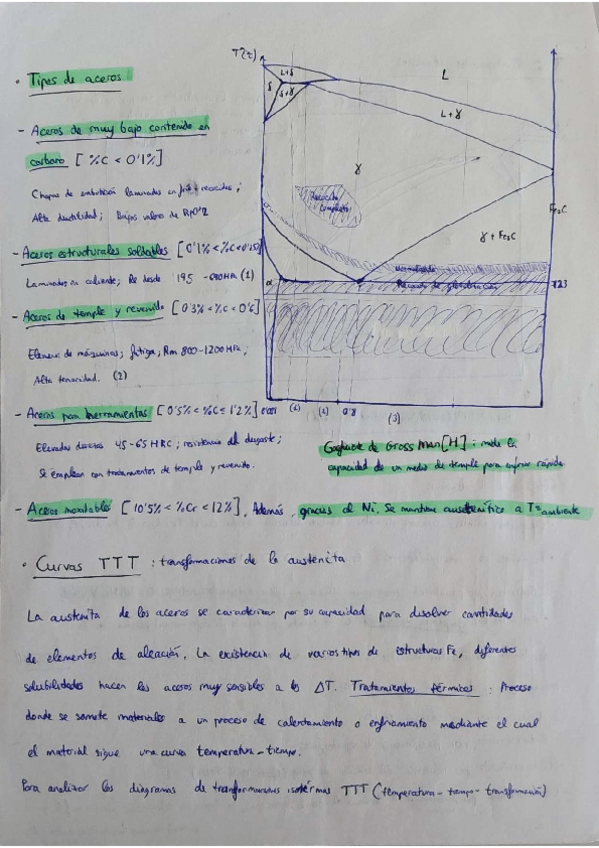 • Tipos de aceros
- Aceros de muy bajo contenido en
carbono [ %C < 0'1%]
Chapas de embutición laminadas en frío + recocidas;
Alta ductilidad; Bajos valores de Rp0'2
- Aceros estructurales soldables [0'1% < %C < 0'25%]
Laminados en caliente; Re desde 195 - 690MPa (1)
- Aceros de temple y revenido [0'3% < %C < 0'6]
Elementos de máquinas; fatiga; Rm 800-1200 MPa;
Alta tenacidad. (2)
- Aceros para herramientas [0'5% < %C < 1'2%]
Elevadas durezas 45-65 HRC; resistencia al desgaste;
Se emplean con tratamientos de temple y revenido.
T(ºC)
L+δ
δ
δ+γ
L
L+γ
γ
Recocido
completo
γ + Fe3C
Fe3C
Normalizado
α
Recocido de globulización
723
(1)
(2)
0'8
(3)
Coeficiente de Grossman [H]: mide la
capacidad de un medio de temple para enfriar rápido
- Aceros inoxidables [10'5% < %Cr < 12%]. Además, gracias al Ni, se mantiene austenítico a Tª ambiente
• Curvas TTT : transformaciones de la austenita
La austenita de los aceros se caracterizan por su capacidad para disolver cantidades
de elementos de aleación. La existencia de varios tipos de estructuras Fe, diferentes
solubilidades hacen los aceros muy sensibles a los ΔT. Tratamientos térmicos : Proceso
donde se somete materiales a un proceso de calentamiento o enfriamiento mediante el cual
el material sigue una curva temperatura-tiempo.
Para analizar los diagramas de transformaciones isotérmas TTT (temperatura-tiempo-transformación)